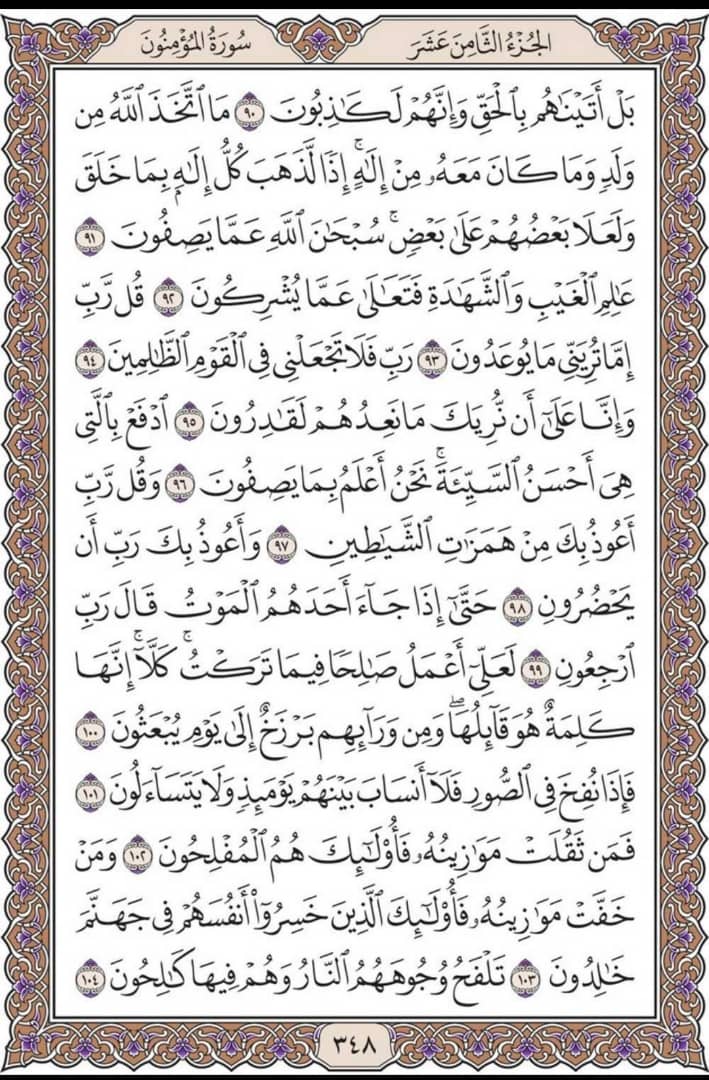 الجُزْءُ الثَّامِنَ عَشَرَ
سُورَةُ المُؤْمِنُونَ
بَلْ أَتَيْنَٰهُم بِٱلْحَقِّ وَإِنَّهُمْ لَكَٰذِبُونَ ٩٠ مَا ٱتَّخَذَ ٱللَّهُ مِن
وَلَدٍ وَمَا كَانَ مَعَهُۥ مِنْ إِلَٰهٍۚ إِذًا لَّذَهَبَ كُلُّ إِلَٰهٍۭ بِمَا خَلَقَ
وَلَعَلَا بَعْضُهُمْ عَلَىٰ بَعْضٍۚ سُبْحَٰنَ ٱللَّهِ عَمَّا يَصِفُونَ ٩١
عَٰلِمِ ٱلْغَيْبِ وَٱلشَّهَٰدَةِ فَتَعَٰلَىٰ عَمَّا يُشْرِكُونَ ٩٢ قُل رَّبِّ
إِمَّا تُرِيَنِّي مَا يُوعَدُونَ ٩٣ رَبِّ فَلَا تَجْعَلْنِي فِي ٱلْقَوْمِ ٱلظَّٰلِمِينَ ٩٤
وَإِنَّا عَلَىٰٓ أَن نُّرِيَكَ مَا نَعِدُهُمْ لَقَٰدِرُونَ ٩٥ ٱدْفَعْ بِٱلَّتِي
هِيَ أَحْسَنُ ٱلسَّيِّئَةَۚ نَحْنُ أَعْلَمُ بِمَا يَصِفُونَ ٩٦ وَقُل رَّبِّ
أَعُوذُ بِكَ مِنْ هَمَزَٰتِ ٱلشَّيَٰطِينِ ٩٧ وَأَعُوذُ بِكَ رَبِّ أَن
يَحْضُرُونِ ٩٨ حَتَّىٰٓ إِذَا جَآءَ أَحَدَهُمُ ٱلْمَوْتُ قَالَ رَبِّ
ٱرْجِعُونِ ٩٩ لَعَلِّيٓ أَعْمَلُ صَٰلِحًا فِيمَا تَرَكْتُۚ كَلَّآۚ إِنَّهَا
كَلِمَةٌ هُوَ قَآئِلُهَاۖ وَمِن وَرَآئِهِم بَرْزَخٌ إِلَىٰ يَوْمِ يُبْعَثُونَ ١٠٠
فَإِذَا نُفِخَ فِي ٱلصُّورِ فَلَآ أَنسَابَ بَيْنَهُمْ يَوْمَئِذٍ وَلَا يَتَسَآءَلُونَ ١٠١
فَمَن ثَقُلَتْ مَوَٰزِينُهُۥ فَأُوْلَٰٓئِكَ هُمُ ٱلْمُفْلِحُونَ ١٠٢ وَمَنْ
خَفَّتْ مَوَٰزِينُهُۥ فَأُوْلَٰٓئِكَ ٱلَّذِينَ خَسِرُوٓاْ أَنفُسَهُمْ فِي جَهَنَّمَ
خَٰلِدُونَ ١٠٣ تَلْفَحُ وُجُوهَهُمُ ٱلنَّارُ وَهُمْ فِيهَا كَٰلِحُونَ ١٠٤
٣٤٨